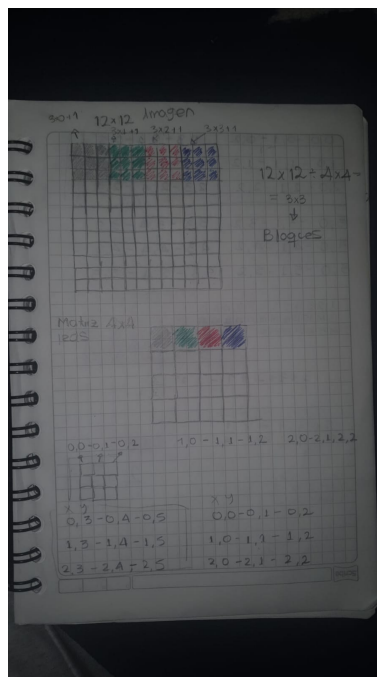 3x0+1 12x12 Imagen
3x1+1 3x2+1 3x3+1
12x12 ÷ 4x4 =
= 3x3
↓
Bloques
Matriz 4x4
leds
0,0-0,1-0,2 1,0-1,1-1,2 2,0-2,1,2,2
x y
0,3-0,4-0,5
1,3-1,4-1,5
2,3-2,4-2,5
x y
0,0-0,1-0,2
1,0-1,1-1,2
2,0-2,1-2,2